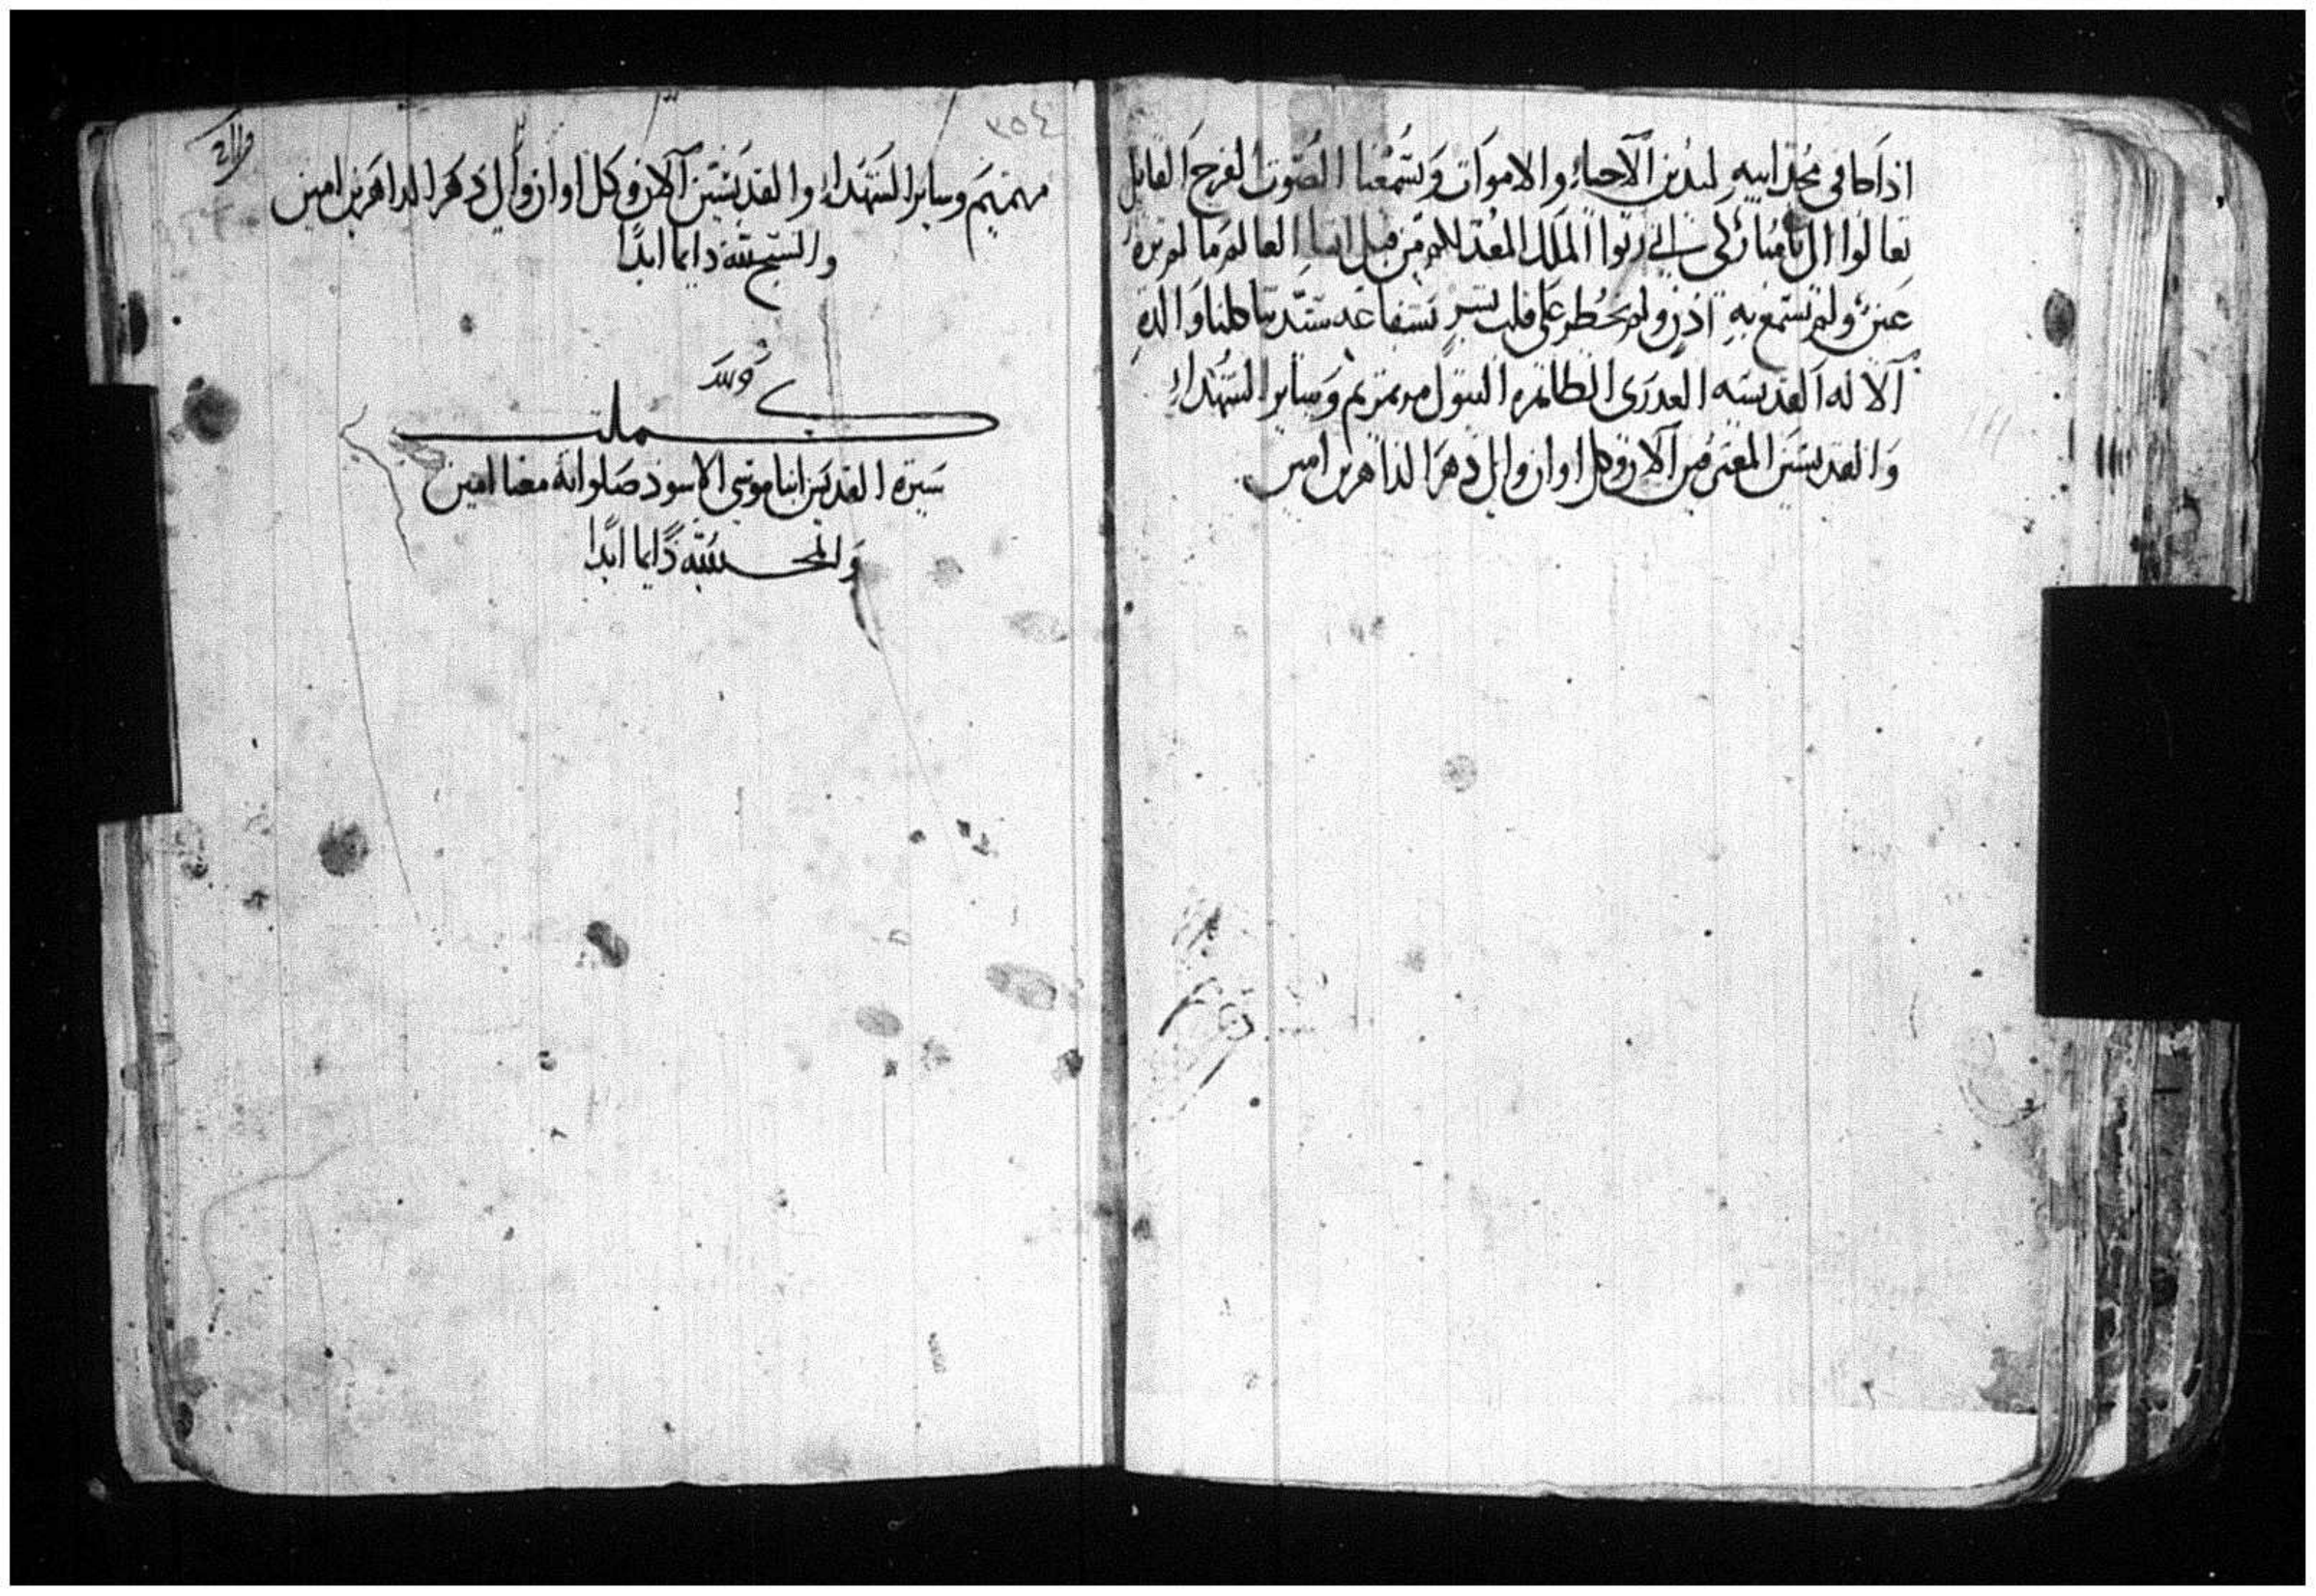 اذا جا في مجد ابيه ليدين الاحياء والاموات ويسمعنا الصوت الفرح القايل
تعالوا الي يا مباركي ابي رثوا الملك المعد لكم من قبل انشاء العالم ما لم تره
عين ولم تسمع به اذن ولم يخطر على قلب بشر بشفاعة ستنا كلنا والدة
الاله القديسه العدرى الطاهره البتول مرتمريم وساير الشهداء
والقديسين المعترفين الان وكل اوان والى دهر الداهرين امين
٣٥٤
مرتمريم وساير الشهداء والقديسين الان وكل اوان والى دهر الداهرين امين
والسبح لله دايما ابدا
كملت
سيرة القديس انبا موسي الاسود صلواته معنا امين
والمجد لله دايما ابدا